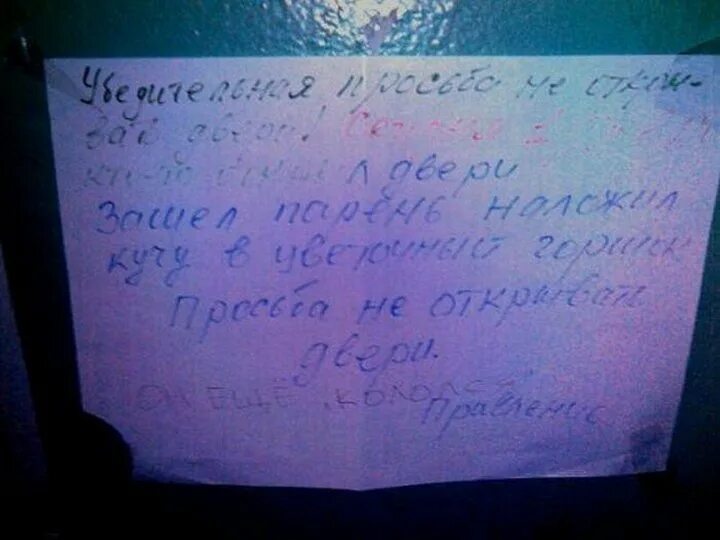 Убедительная просьба не откры-
вай двери!
двери
Зашел парень наложил
кучу в цветочный горшок
Просьба не открывать
двери.
Он ещё кололся
Правление